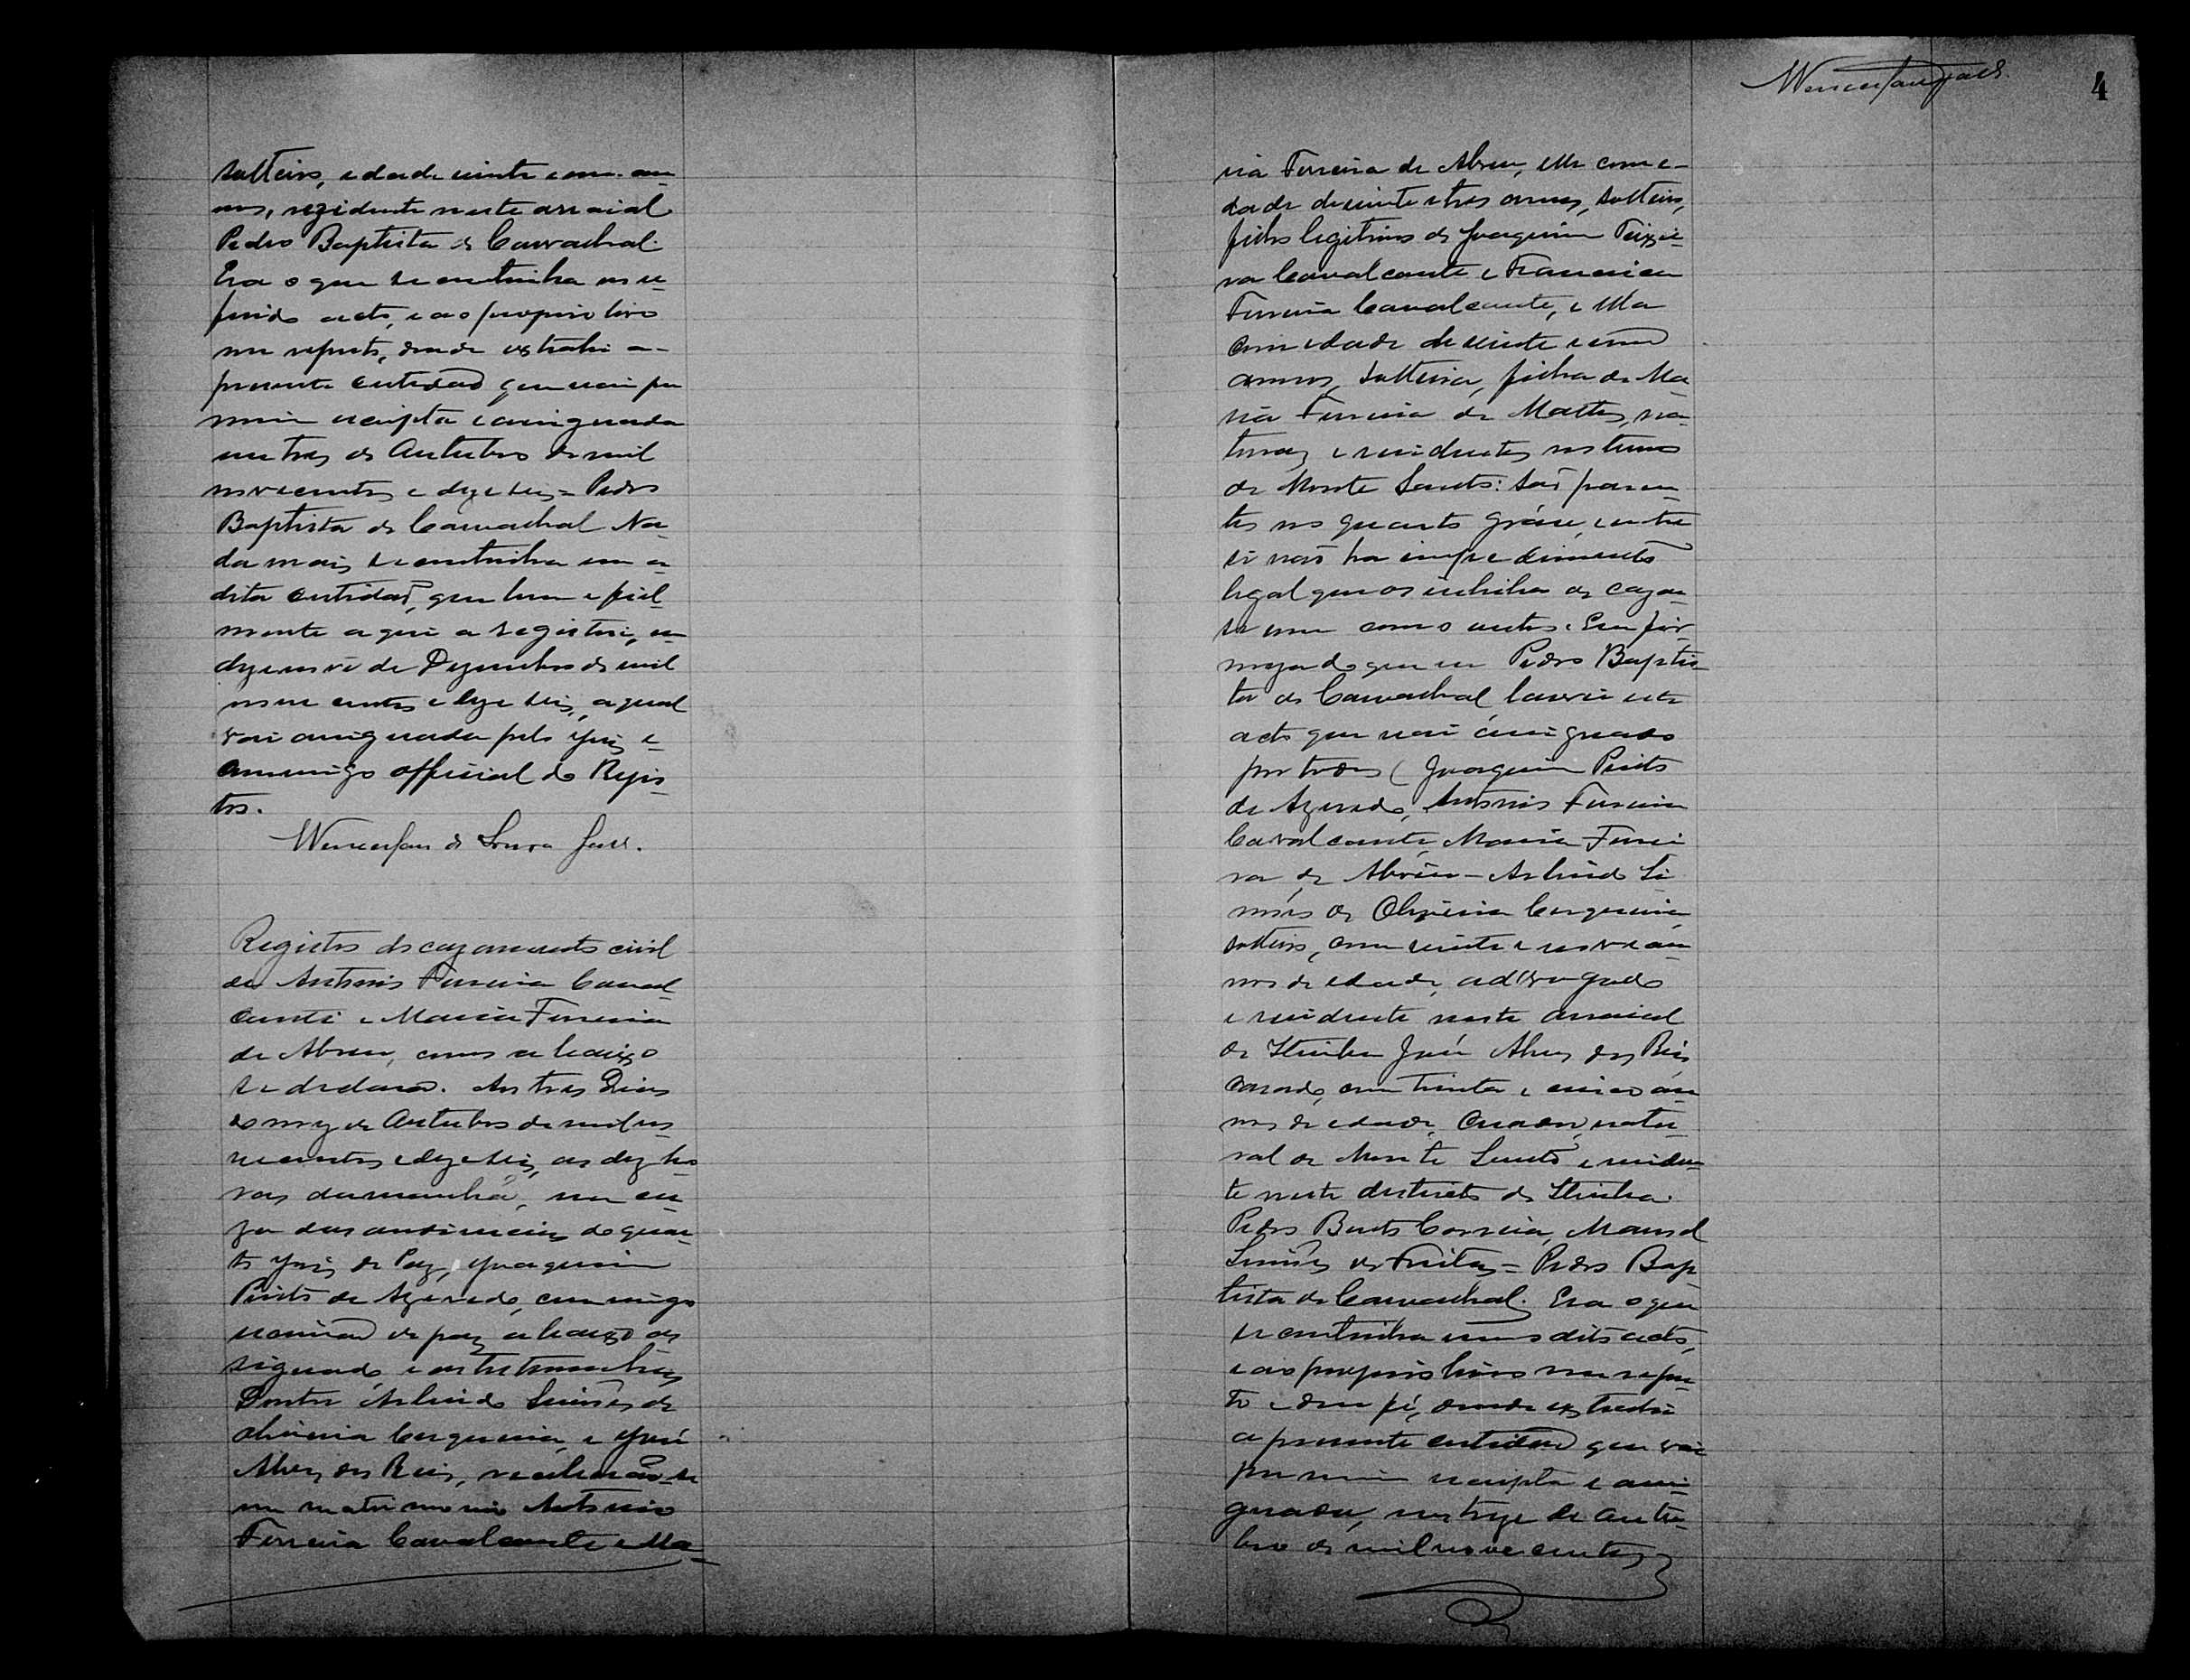 solteiro, edade vinte e um an-
nos, rezidente neste arraial
Pedro Baptista de Carvachal.
Era o que se continha no re-
ferido acto, e ao proprio livro
me reporto, donde extrahi a
presente certidão que vai por
mim escripta e assignada
em tres de Outubro de mil
novecentos e dezeseis = Pedro
Baptista de Carvachal Na-
da mais se continha em a
dita certidão, que bem e fiel-
mente aqui a registrei, em
dezenove de Dezembro de mil
nove centos e dezeseis, a qual
vai assignada pelo Juiz e
commigo official do Regis-
tro.
Wenceslau de Souza
Registro do cazamento civil
de Antonio Ferreira Caval-
cante e Maria Ferreira
de Abreu, como a baixo
se declara. Aos tres Dias
do mez de Outubro de mil no-
vecentos e dezeseis, as dez ho-
ras da manhã, na ca-
za das audiencias do quar-
to Juiz de Paz, Joaquim
Pinto de Azevedo, commigo
escrivão de paz a baixo as-
signado e as testemunhas
Doutor Arlindo Simões de
Oliveira Cerqueira, e José
Alves dos Reis, receberão-se
em matrimonio Antonio
Ferreira Cavalcante e Ma-
4
ria Ferreira de Abreu, elle com e-
dade de vinte e tres annos, solteiro,
filho legitimo de Joaquim Teixei-
ra Cavalcante e Francisca
Ferreira Cavalcante, e ella
com edade de vinte e um
annos, solteira, filha de Ma
ria Ferreira de Mattos, na-
turaes e residentes no termo
de Monte Santo: são paren-
tes no quarto gráu, entre
si não ha impedimento
legal que os inhiba de cazar-
se um com o outro. Em fir
meza do que eu Pedro Baptis-
ta de Carvachal lavrei este
acto que vai assignado
por todos ( Joaquim Pinto
de Azevedo, Antonio Ferreira
Cavalcante, Maria Ferrei
ra de Abreu - Arlindo Si
mões de Oliveira Cerqueira
solteiro, com vinte e nove an-
nos de edade, advogado
e residente neste arraial
de Itiuba José Alves dos Reis
casado, com trinta e cinco an-
nos de edade, natu-
ral de Monte Santo e residen-
te neste districto de Itiuba.
Pedro Bento Correia, Manoel
Simões de Freitas = Pedro Bap
tista de Carvachal. Era o que
se continha em o dito acto,
e ao proprio livro me repor-
to e dou fé, donde extrahi
a presente certidão que vai
por mim escripta e assi-
gnada, em treze de Outu-
bro de mil novecentos